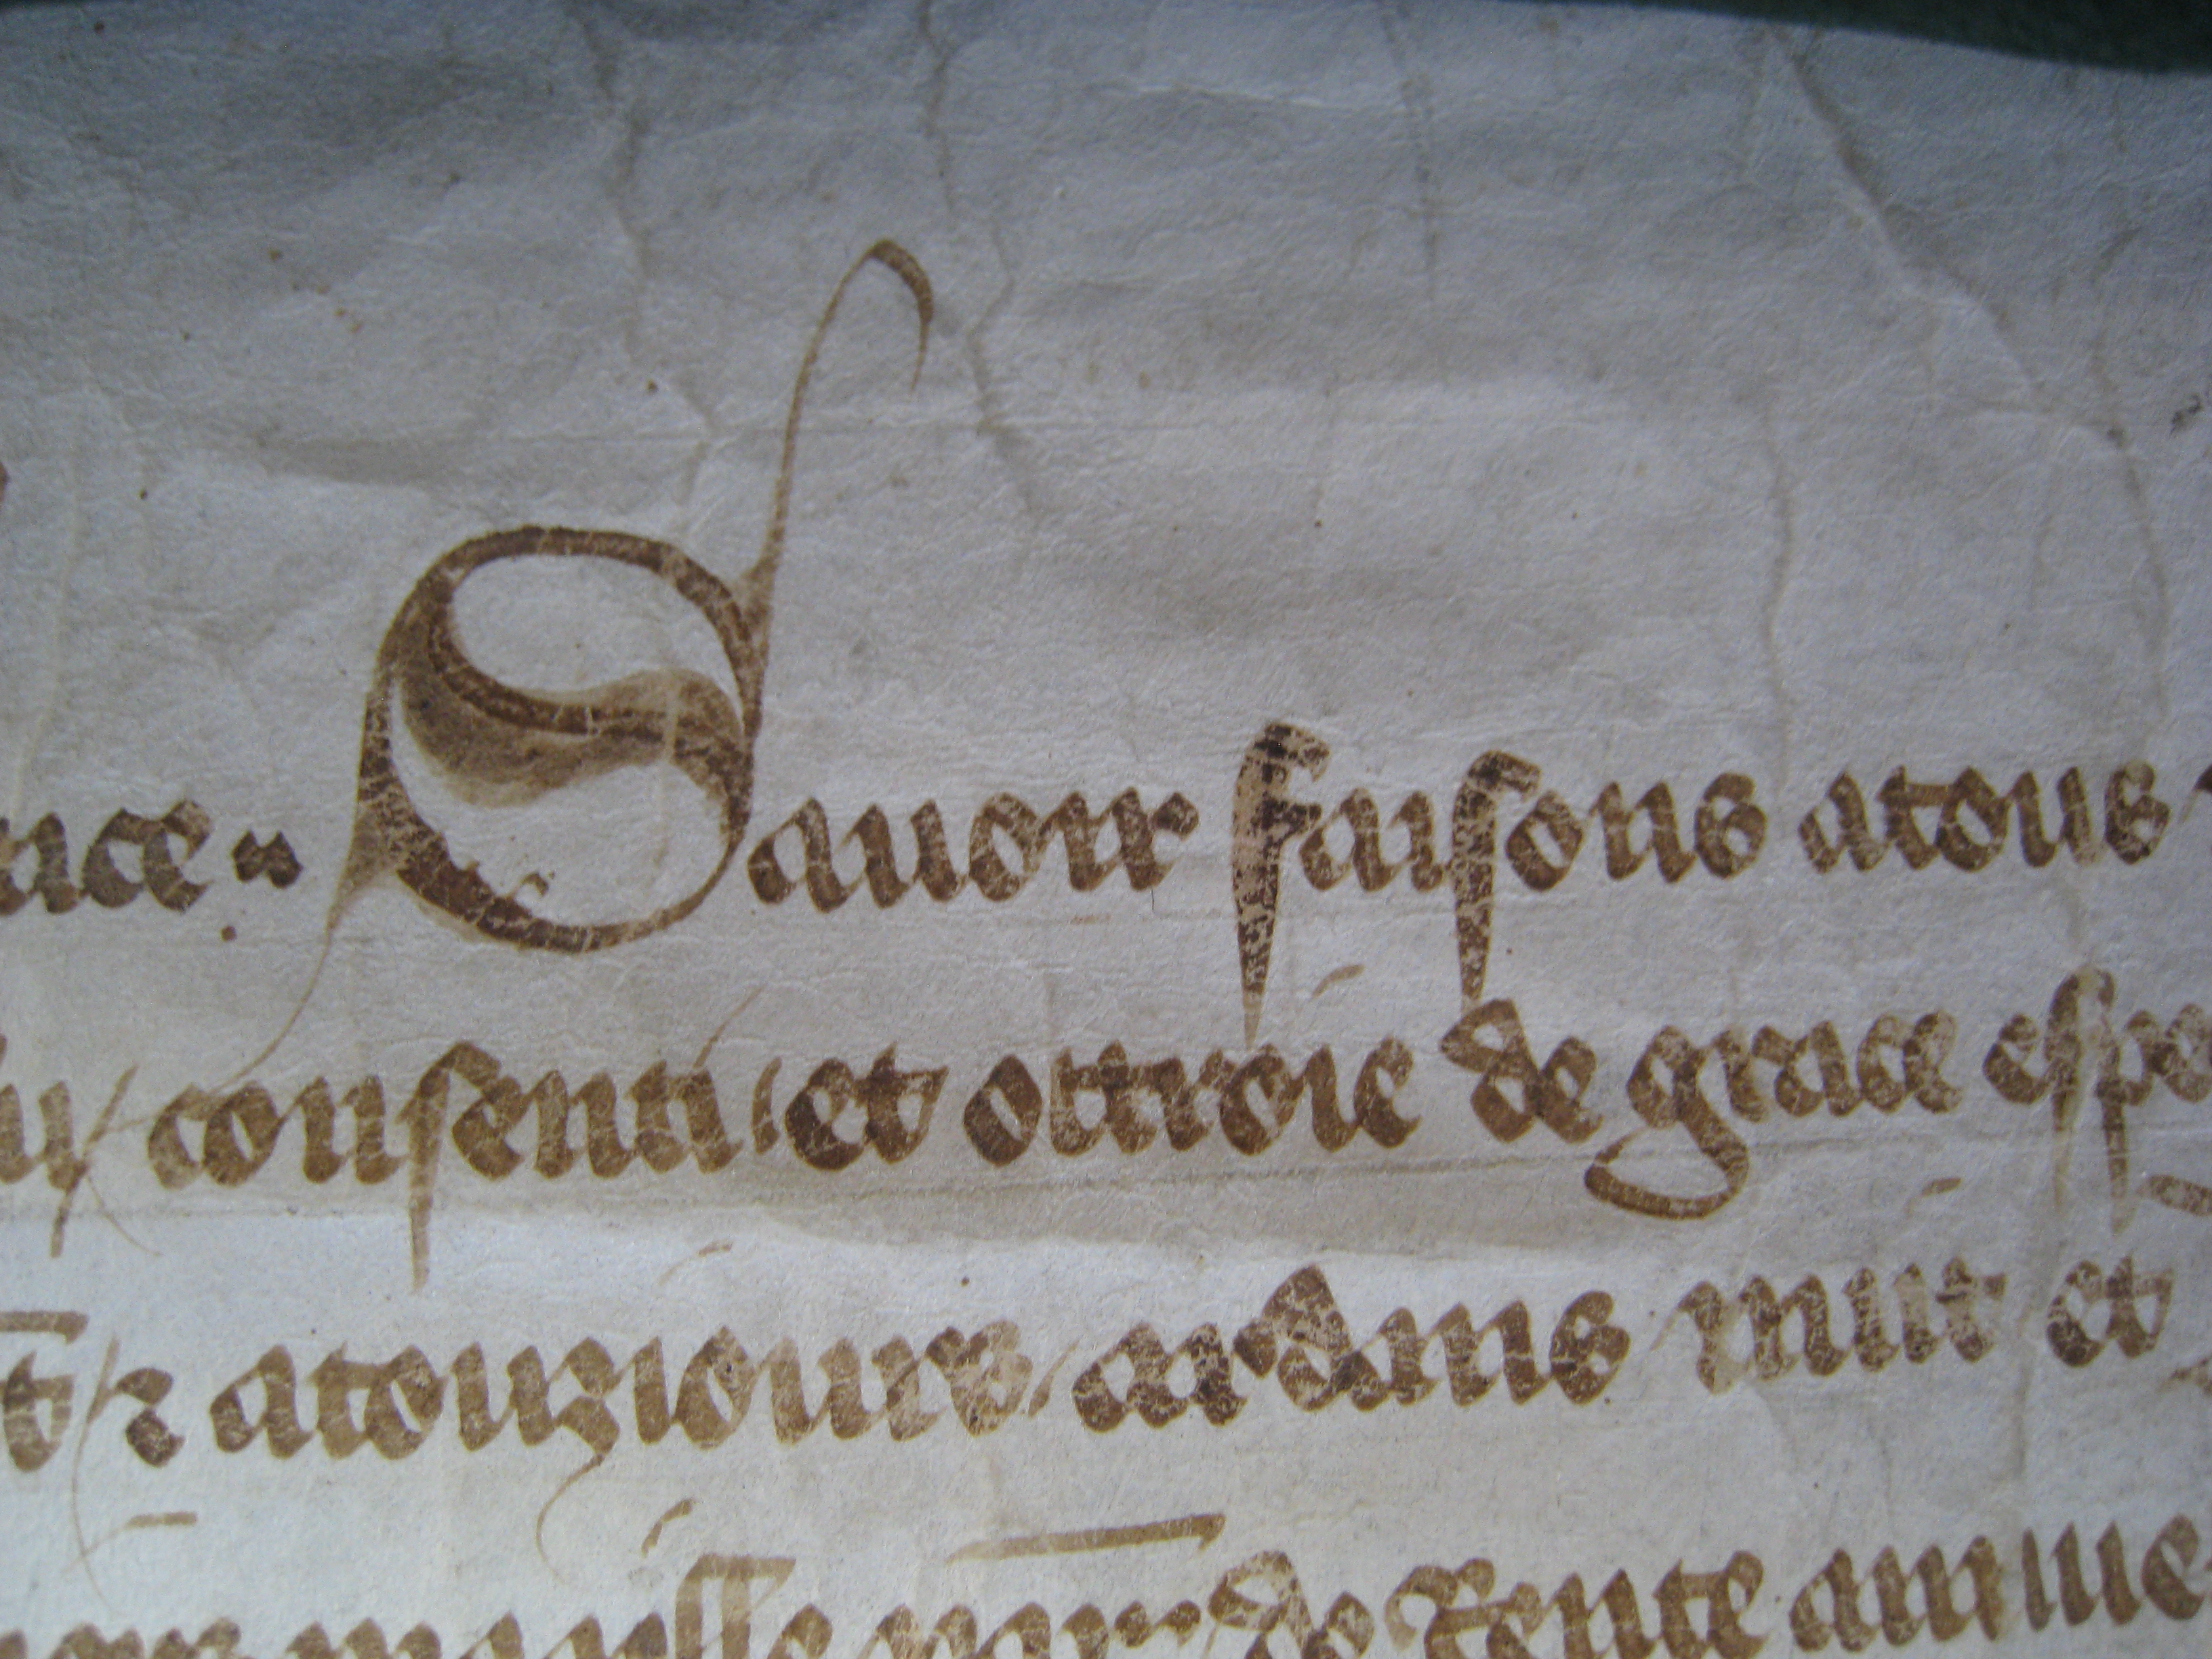 nce Sauoir faisons atous
consenti et ottroie de grace espe
atouziours ardans nuit et
maille de rente annue